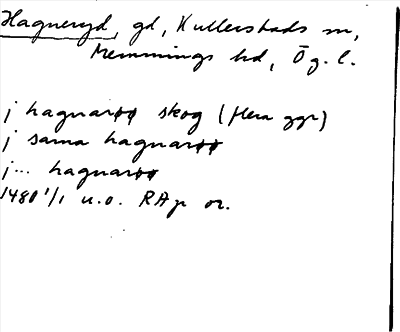 Hagneryd, gd, Kullerstads sn,
Memmings hd, Ög. l.
j hagnarøø skog (flera ggr)
j sama hagnarøø
j... hagnarøø
1480 1/1 u.o. RAp or.